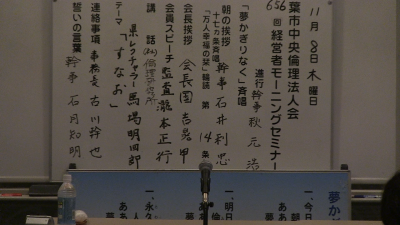 11月8日木曜日
葉市中央倫理法人会
656回 経営者モーニングセミナー
進行 幹事 秋元浩
「夢かぎりなく」斉唱
朝の挨拶 幹事 石井利忠
十七カ条斉唱
「万人幸福の栞」輪読 第14条
会長挨拶 会長 園吉晃甲
会員スピーチ 監査 瀧本正行
講話 (社)倫理研究所
県レクチャラー 馬場明四郎
テーマ「すなお」
連絡事項 事務長 古川幹也
誓いの言葉 幹事 石月知明
夢か
一、今日
一、明日
一、永久